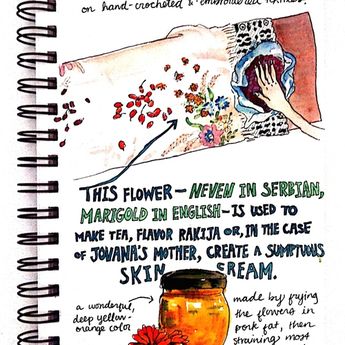 on hand-crocheted & embroidered textiles.
THIS FLOWER - NEVEN IN SERBIAN,
MARIGOLD IN ENGLISH - IS USED TO
MAKE TEA, FLAVOR RAKIJA OR, IN THE CASE
OF JOVANA'S MOTHER, CREATE A SUMPTUOUS
SKIN CREAM.
a wonderful,
deep yellow-
orange color
made by frying
the flowers in
pork fat, then
straining most